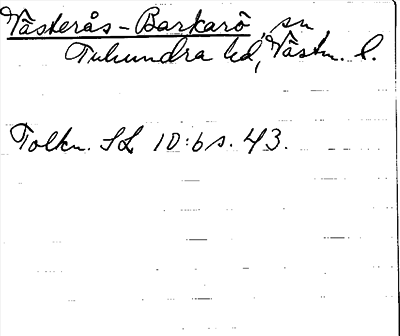 Västerås-Barkarö, sn
Tuhundra hd, Västm. l.
Tolkn. SL 10:6 s. 43.